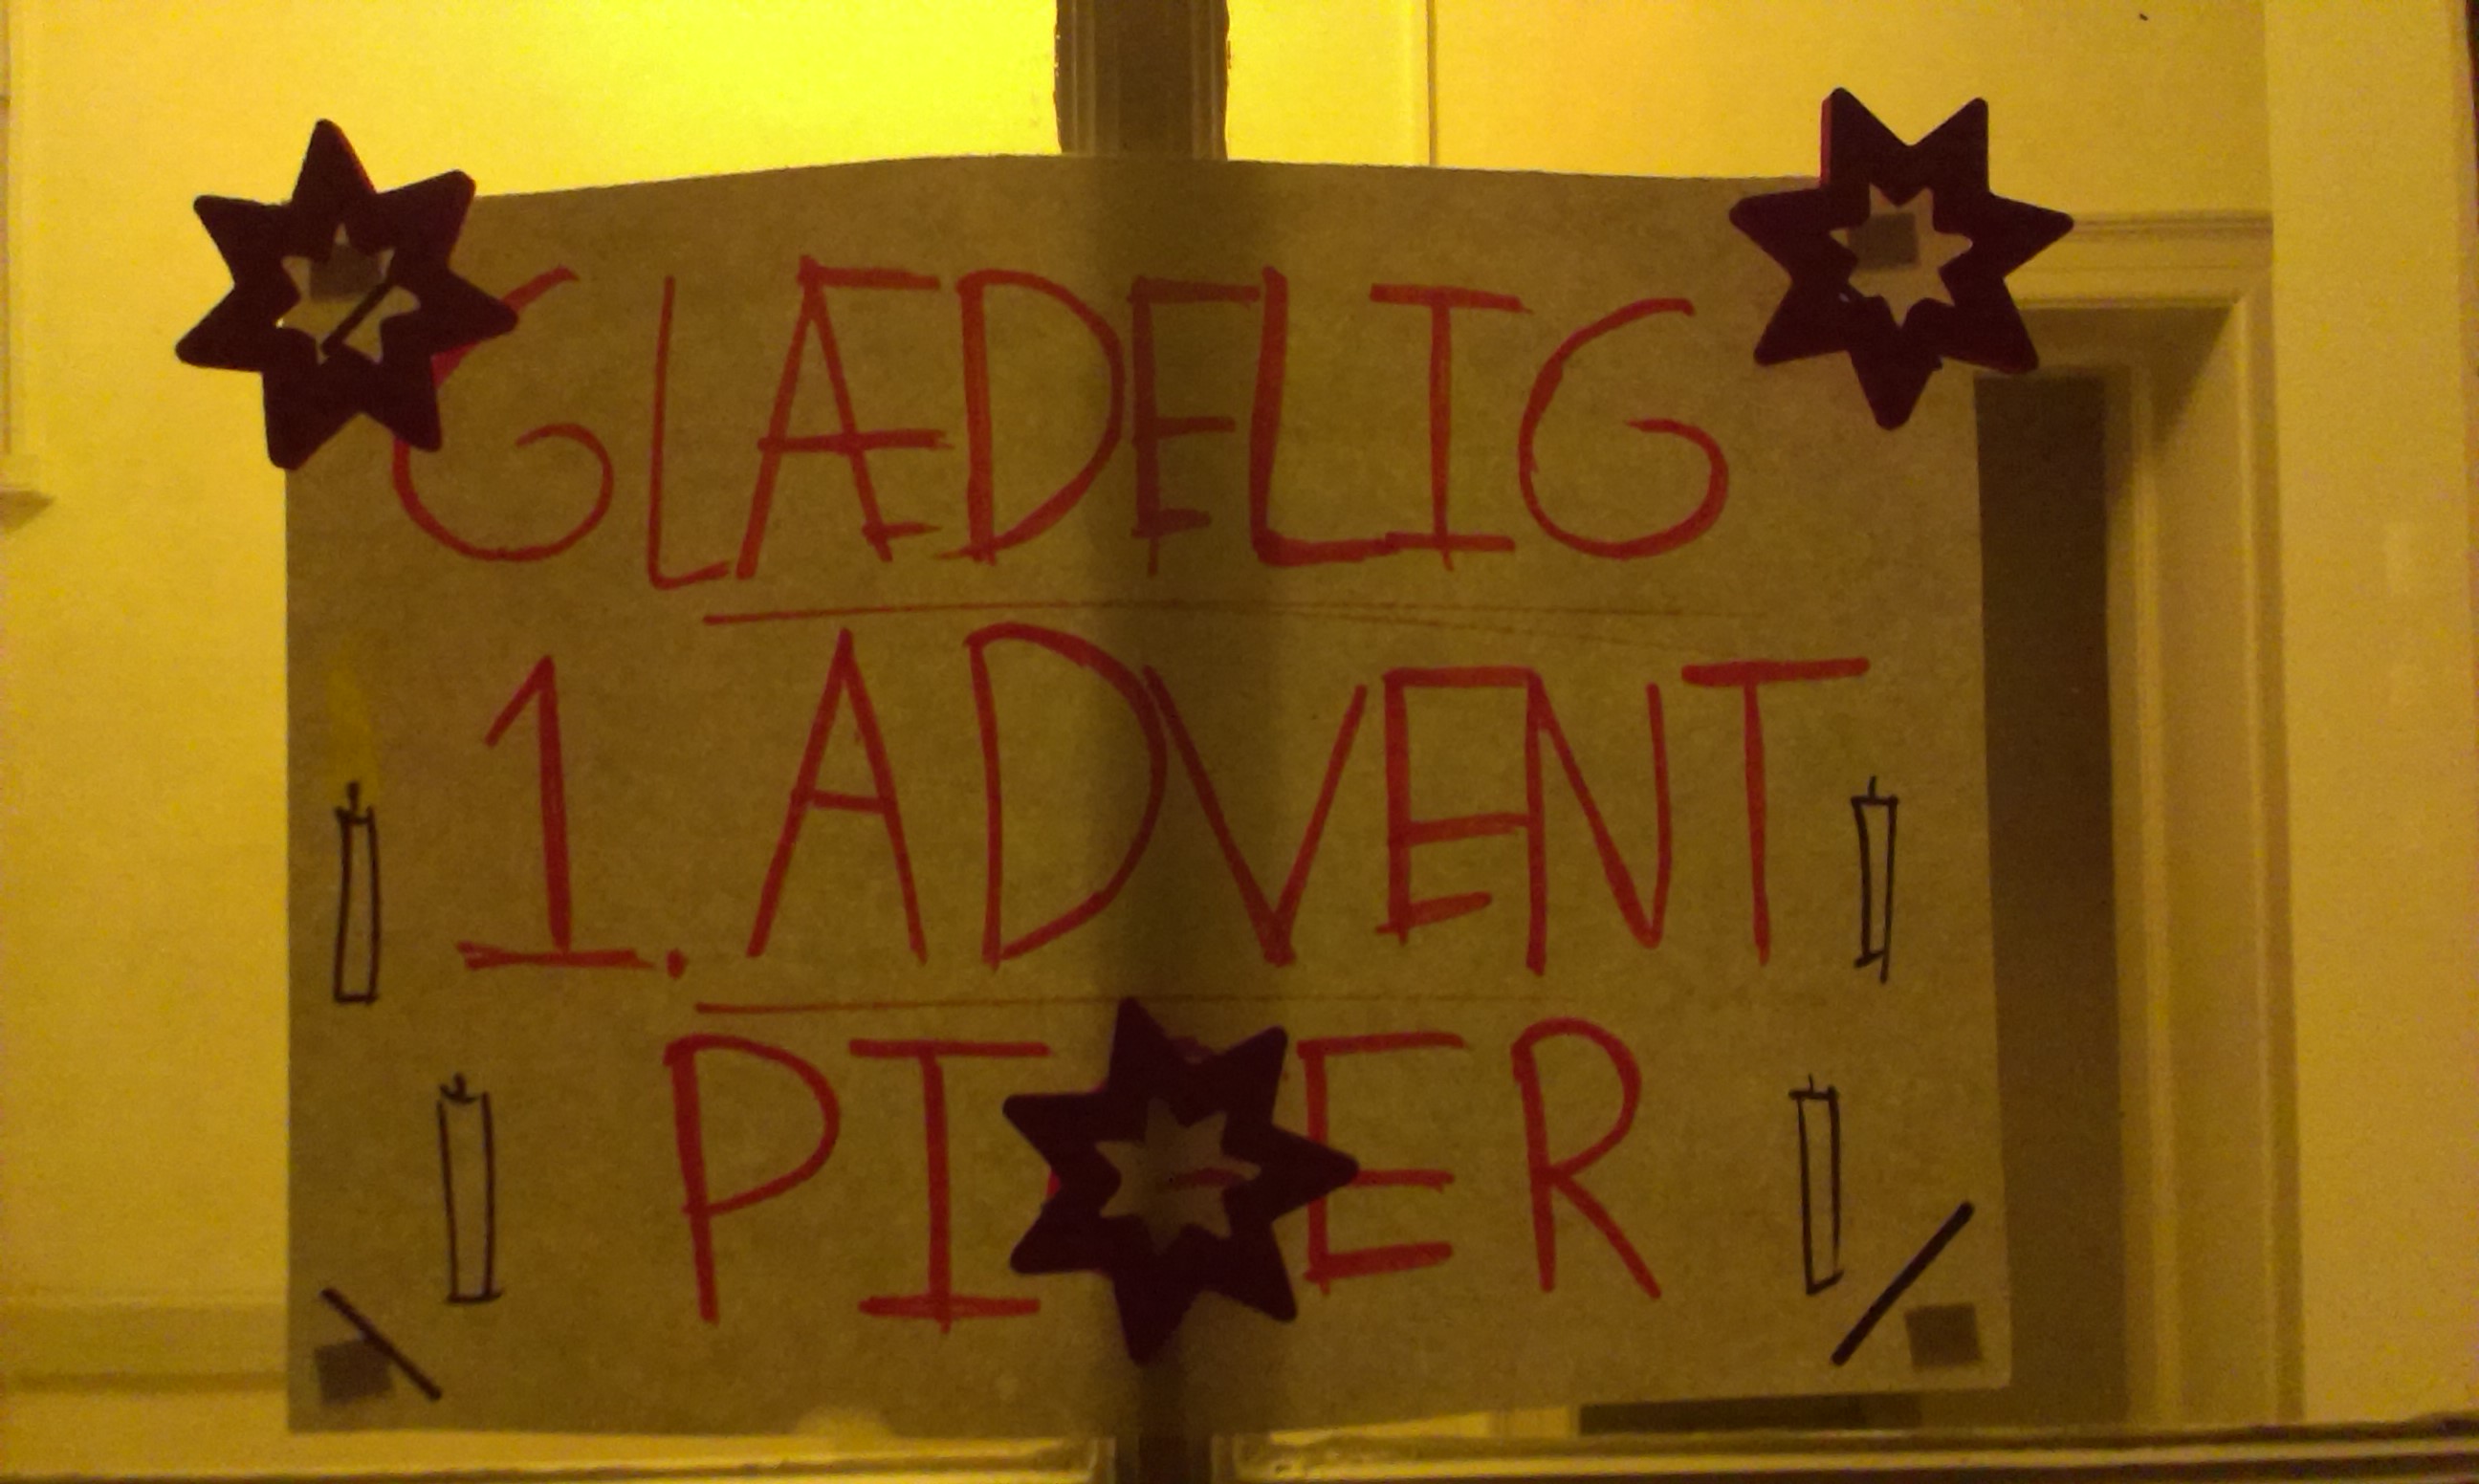 GLÆDELIG
1. ADVENT
PIGER